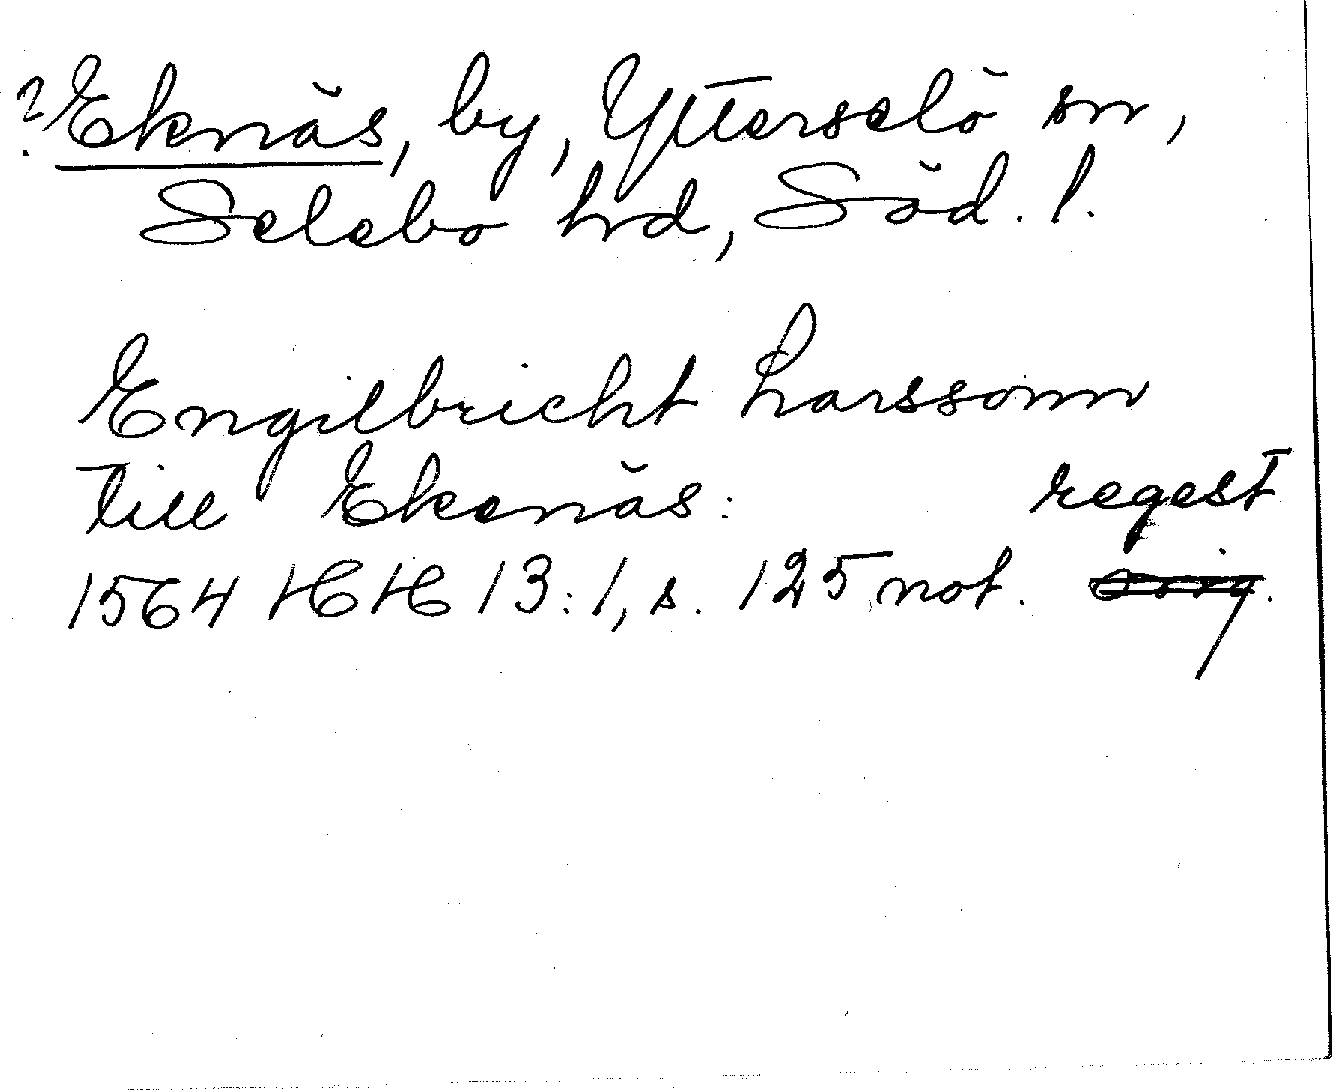 ? Eknäs, by, Ytterselö sn,
Selebo hrd, Söd. l.
Engilbricht Larssonn
till Ekenäs: regest
1564 HH 13:1, s. 125 not. orig.